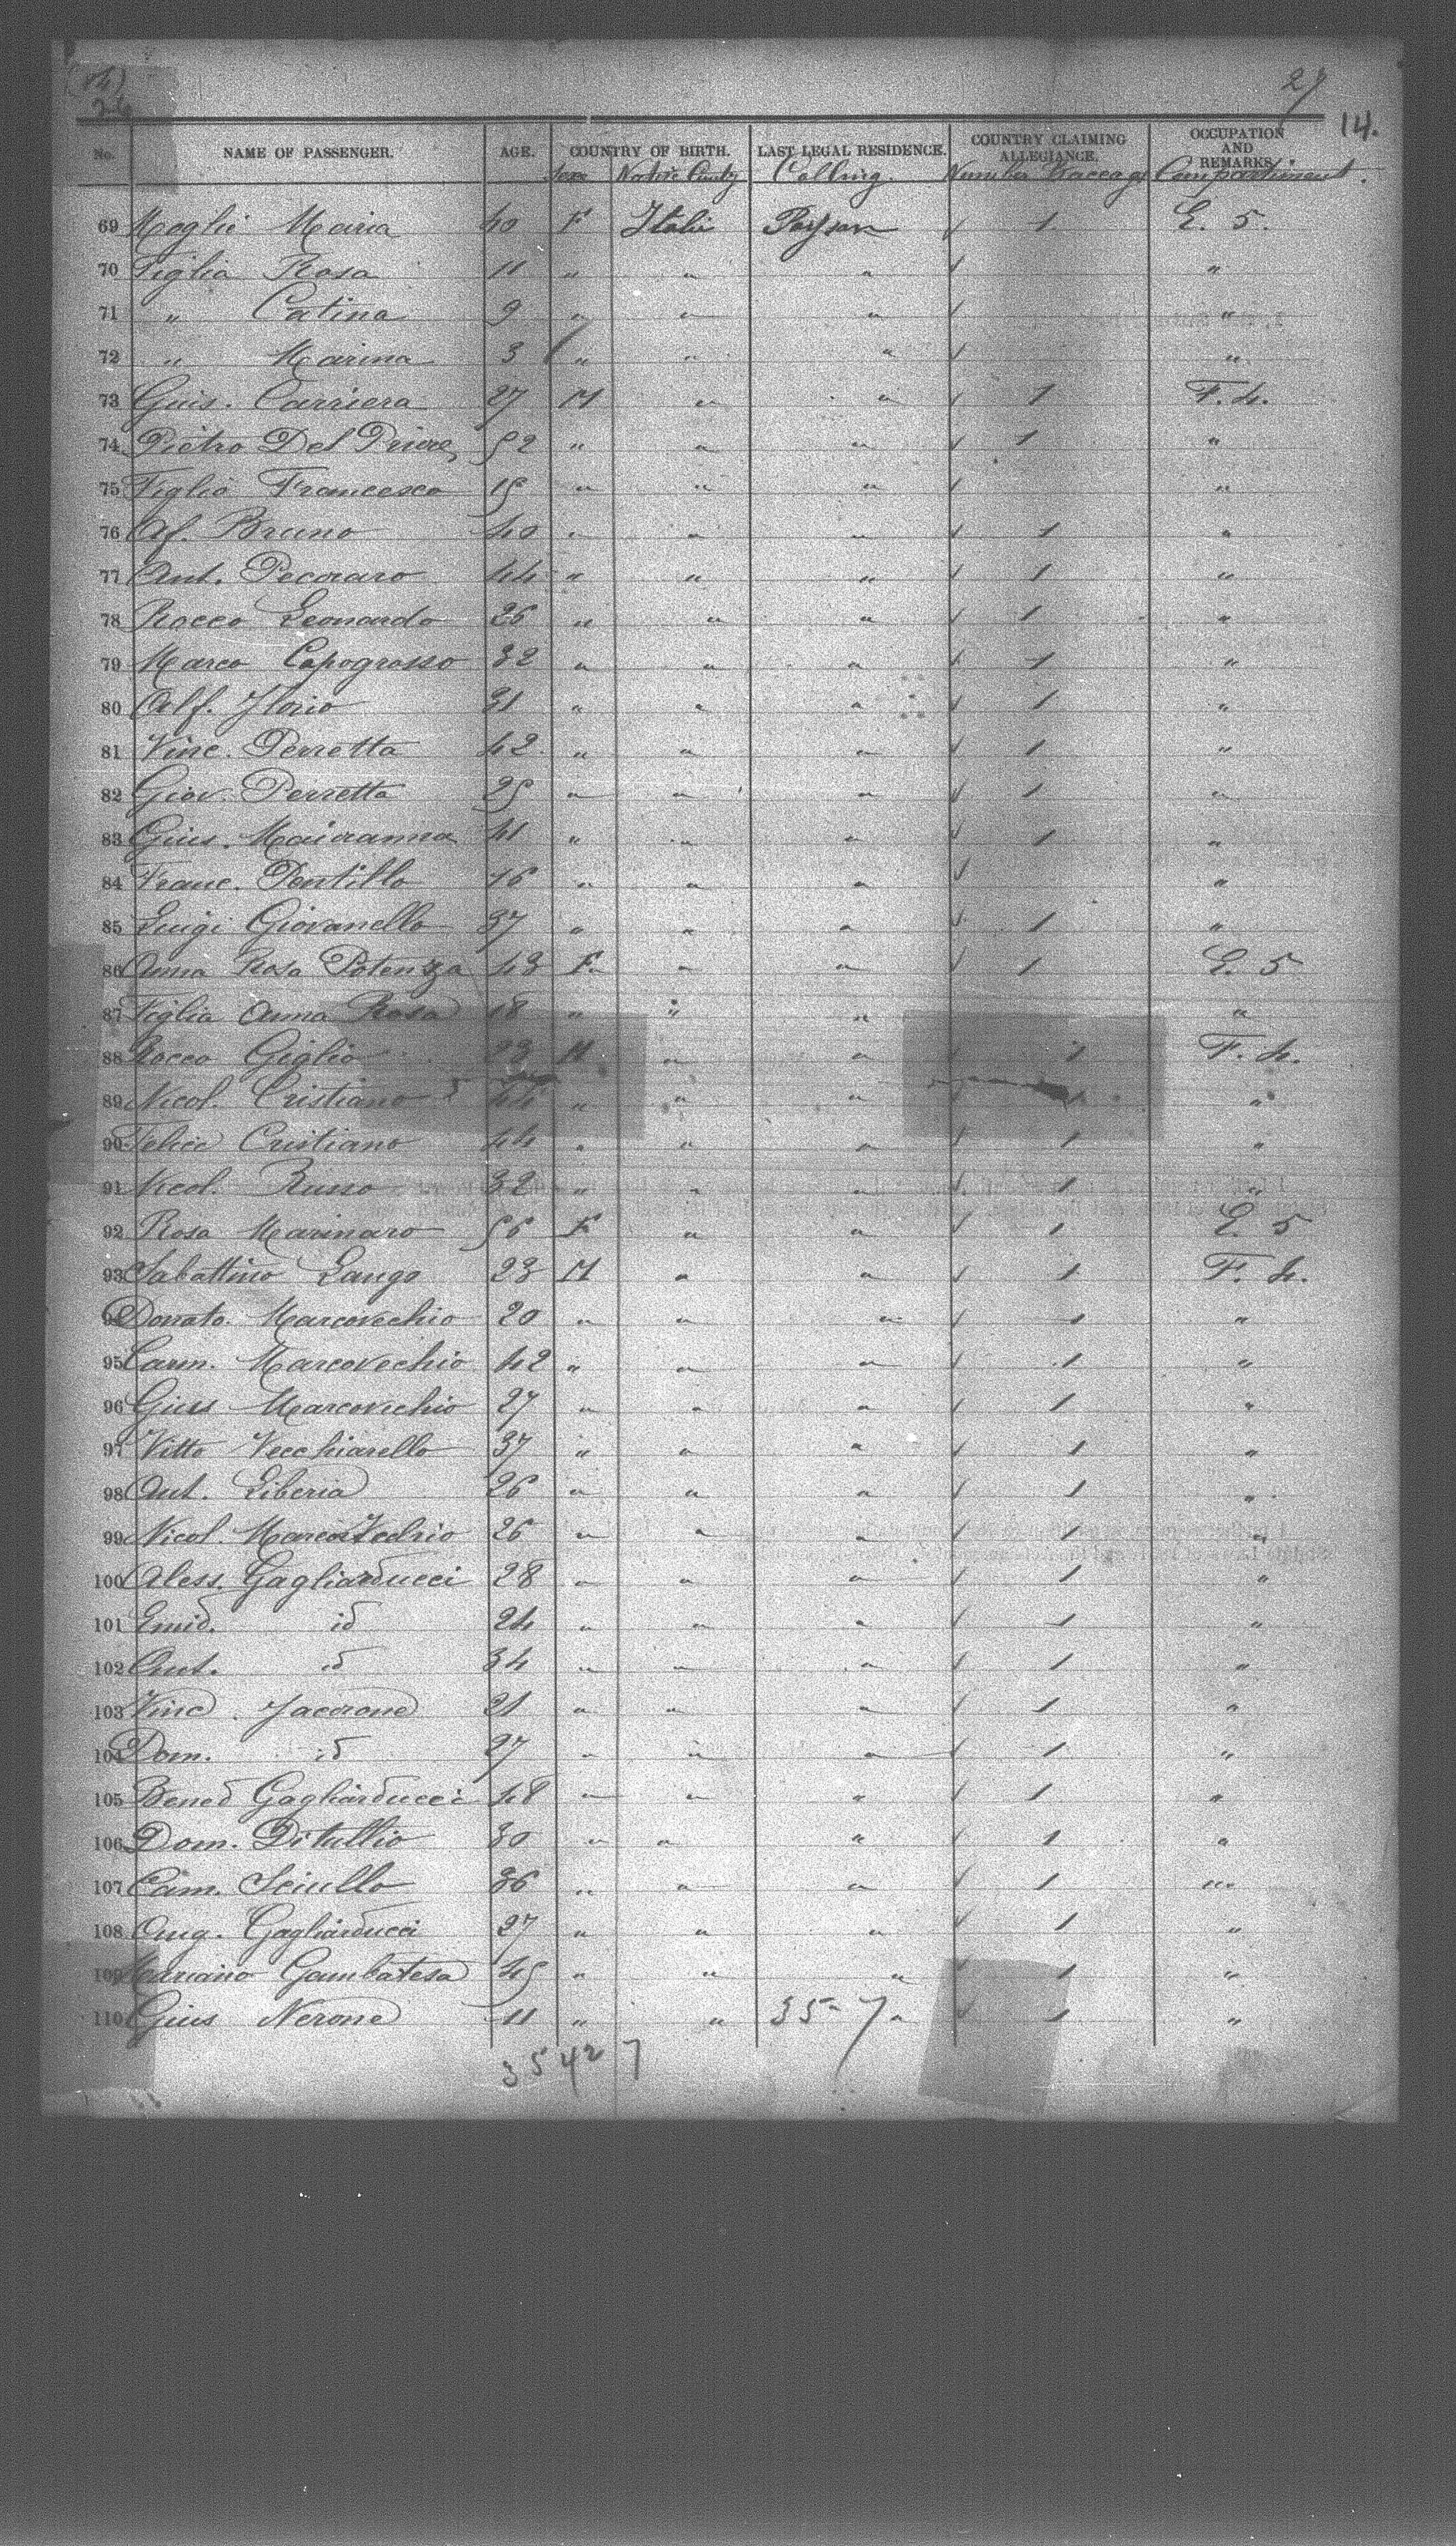 (14)
26
27
14.
No. NAME OF PASSENGER. AGE. COUNTRY OF BIRTH. LAST LEGAL RESIDENCE. COUNTRY CLAIMING ALLEGIANCE. OCCUPATION AND REMARKS.
Sexe Native Cuntry Calling. Number Baccage Compartiment.
69 Moglie Maria 40 F Italie Paysan √ 1 E. 5.
70 Figlia Rosa 11 " " " √ "
71 " Catina 9 " " " √ "
72 " Marina 3 " " " √ "
73 Gius. Carriera 27 M " " √ 1 F. 4.
74 Pietro Del Priore 52 " " " √ 1 "
75 Figlio Francesco 15 " " " √ "
76 Af. Bruno 40 " " " √ 1 "
77 Ant. Pecoraro 44 " " " √ 1 "
78 Rocco Leonardo 26 " " " √ 1 "
79 Marco Capogrosso 32 " " " √ 1 "
80 Alf. Florio 31 " " " √ 1 "
81 Vinc. Perretta 42 " " " √ 1 "
82 Giov. Perretta 25 " " " √ 1 "
83 Gius. 41 " " " √ 1 "
84 Franc. Pentillo 16 " " " √ "
85 Luigi Giovanello 37 " " " √ 1 "
86 Anna Rosa Potenza 43 F. " " √ 1 E. 5
87 Figlia Anna Rosa 18 " " " "
88 Rocco Giglio 23 M " " 1 F. 4.
89 Nicol. Cristiano 44 " " " 1 "
90 Felice Cristiano 44 " " " √ 1 "
91 Nicol. Russo 32 " " " √ 1 "
92 Rosa Marinaro 56 F " " √ 1 E. 5
93 Sabattino Longo 23 M " " √ 1 F. 4.
94 Donato. Marcovechio 20 " " " √ 1 "
95 Carm. Marcovechio 42 " " " √ 1 "
96 Gius Marcovichio 27 " " " √ 1 "
97 Vitto Vecchiarello 37 " " " √ 1 "
98 Ant. Liberia 26 " " " √ 1 "
99 Nicol. 26 " " " √ 1 "
100 Aless. Gagliarducci 28 " " " √ 1 "
101 Emid. id 24 " " " √ 1 "
102 Ant. id 34 " " " √ 1 "
103 Vinc. Jacerone 21 " " " √ 1 "
104 Dom. id 27 " " " √ 1 "
105 Bened Gagliarducci 48 " " " √ 1 "
106 Dom. Ditullio 30 " " " √ 1 "
107 Cam. Sciullo 36 " " " √ 1 "
108 Ang. Gagliarducci 27 " " " √ 1 "
109 Mariano Gambatesa 45 " " " √ 1 "
110 Gius Nerone 11 " " 35-7 " √ 1 "
35 42 7